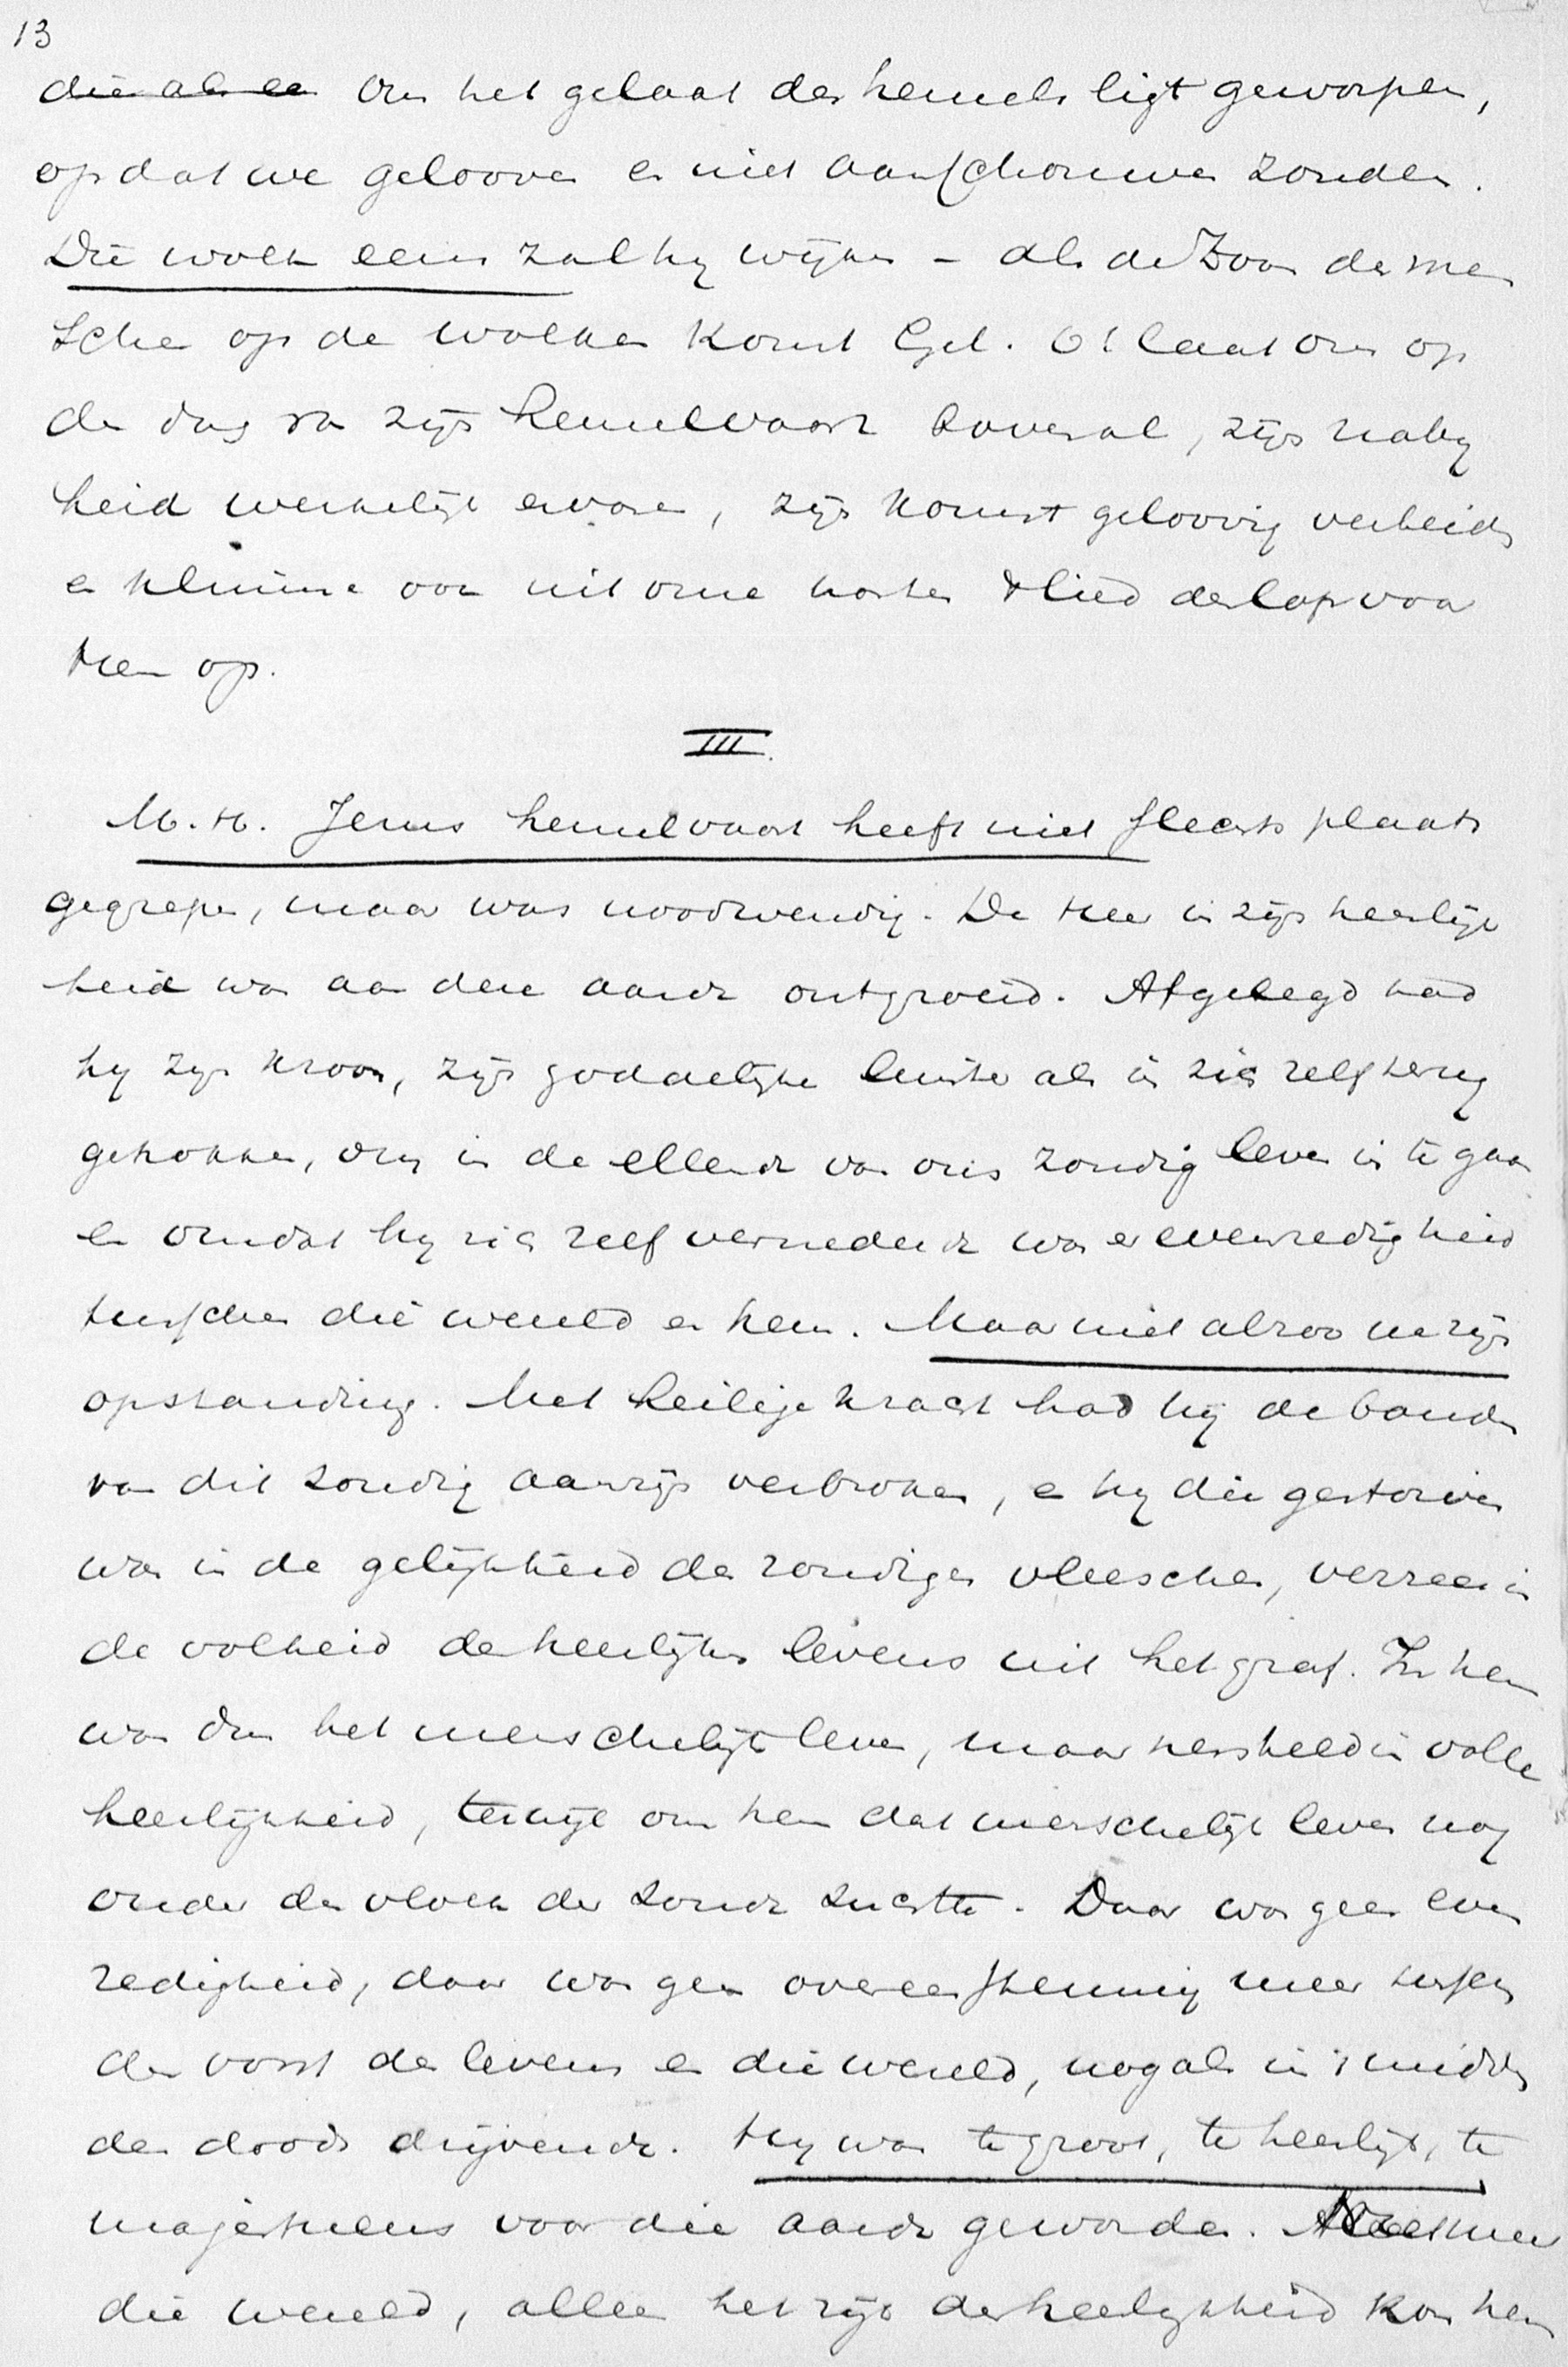 13
die als een Over het gelaat des hemels ligt geworpen,
opdat we gelooven en niet aanschouwen zouden.
Die wolk eens zal hij wijken - als de Zoon des men
schen op de wolken komt Gel. O! laat ons op
den dag van zijn hemelvaart bovenal, zijn nabij
heid werkelijk ervaren, zijn komst geloovig verbeiden
en klimme ook uit onze harten 't lied des lofs voor
Hem op.
III.
M. H. Jezus hemelvaart heeft niet slechts plaats
gegrepen, maar was noodwendig. De Heer in zijn heerlijk
heid was aan deze aarde ontgroeid. Afgelegd had
hij zijn kroon, zijn goddelijke luister als in zich zelf terug
getrokken, om in de ellende van ons zondig leven in te gaan
en omdat hij zich zelf vernederde was er evenredigheid
tusschen die wereld en hem. Maar niet alzoo na zijn
opstanding. Met heilige kracht had hij de banden
van dit zondig aanzijn verbroken, en hij die gestorven
was in de gelijkheid des zondigen vleesches, verrees in
de volheid des heerlijken levens uit het graf. In hem
was dus het menschelijk leven, maar hersteld in volle
heerlijkheid, terwijl om hem dat menschelijk leven nog
onder den vloek der zonde zuchtte. Daar was geen even
redigheid, daar was geen overeenstemming meer tusschen
den vorst des levens en die wereld, nog als in 't midden
des doods drijvende. Hij was te groot, te heerlijk, te
majestueus voor die aarde geworden. Niet meer
die wereld, alleen het rijk der heerlijkheid kon hem